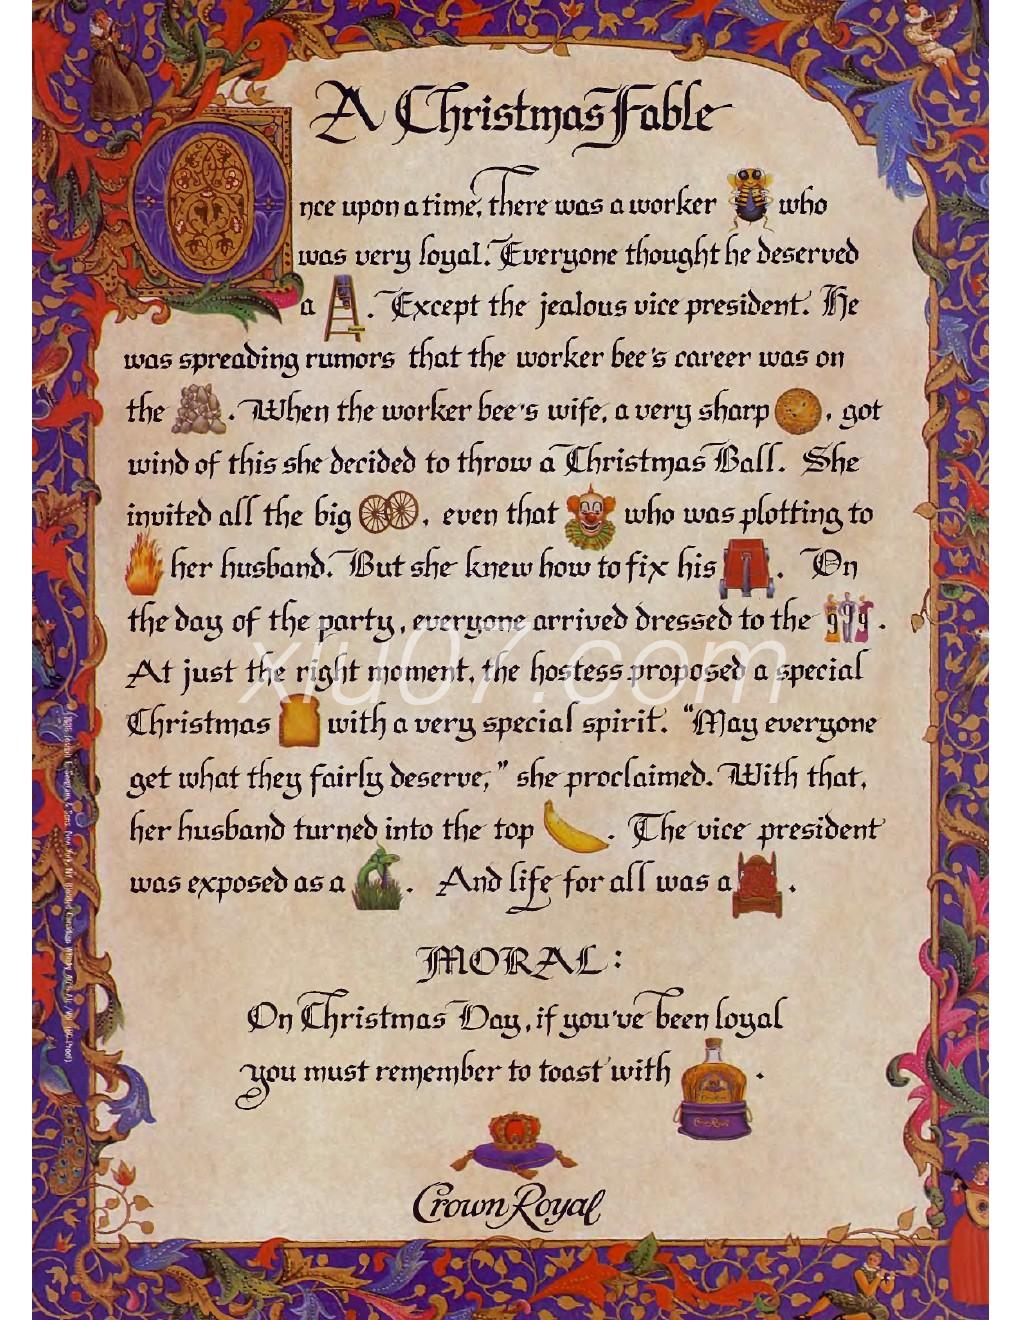 A Christmas Fable
Once upon a time, there was a worker who
was very loyal. Everyone thought he deserved
a . Except the jealous vice president. He
was spreading rumors that the worker bee's career was on
the . When the worker bee's wife, a very sharp , got
wind of this she decided to throw a Christmas Ball. She
invited all the big , even that who was plotting to
her husband. But she knew how to fix his . On
the day of the party, everyone arrived dressed to the 999.
At just the right moment, the hostess proposed a special
Christmas with a very special spirit. "May everyone
get what they fairly deserve," she proclaimed. With that,
her husband turned into the top . The vice president
was exposed as a . And life for all was a .
MORAL:
On Christmas Day, if you've been loyal
you must remember to toast with .
Crown Royal
xiu07.com